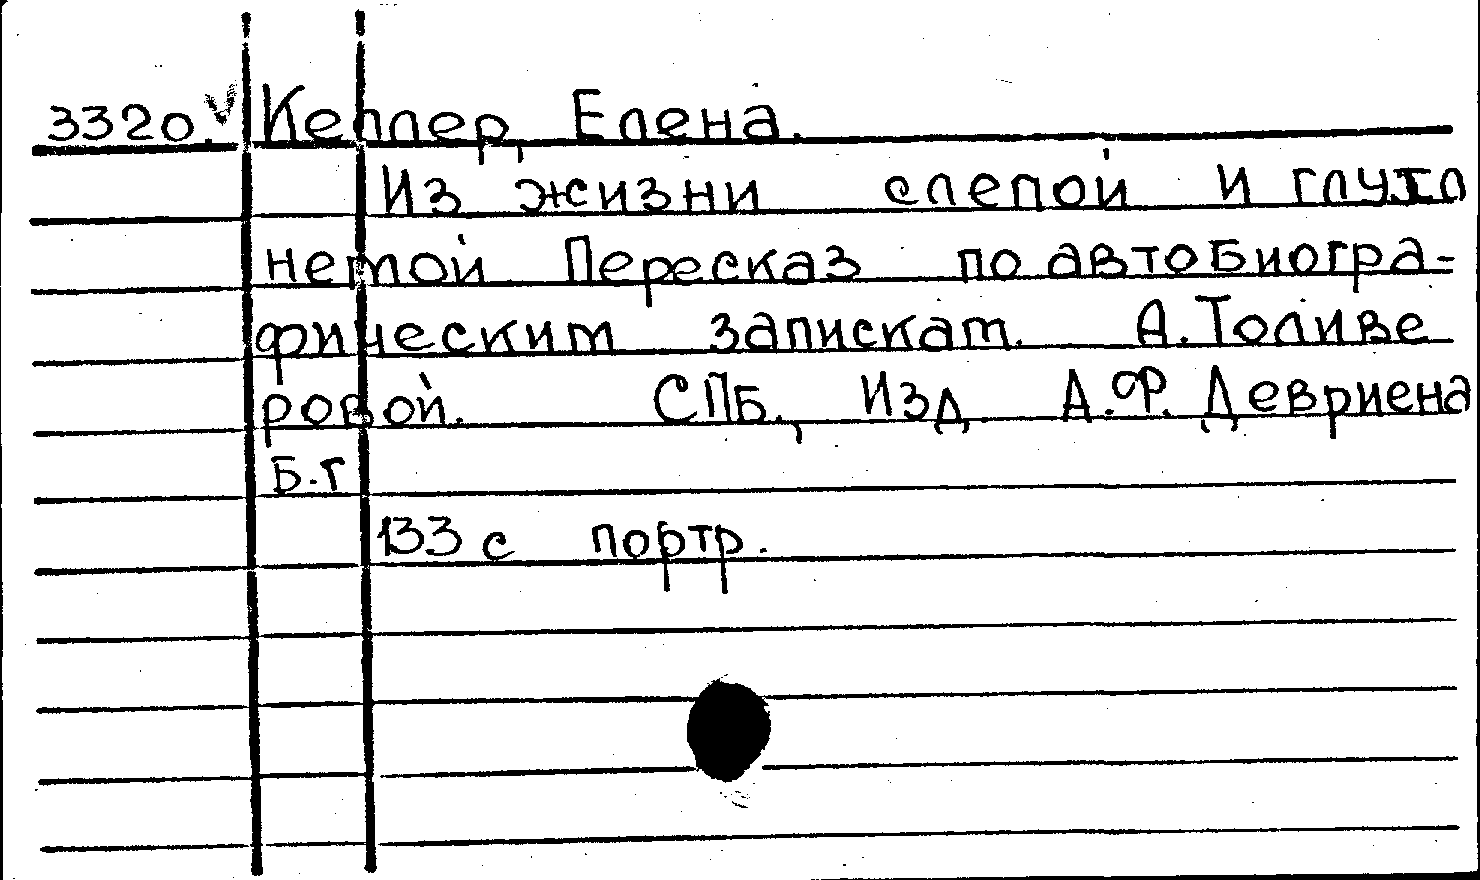 3320. V Келлер, Елена.
Из жизни слепой и глухо
немой Пересказ по автобиогра-
фическим запискам. А. Толиве
ровой. СПБ., Изд. А.Ф. Девриена
Б.г
133 с портр.